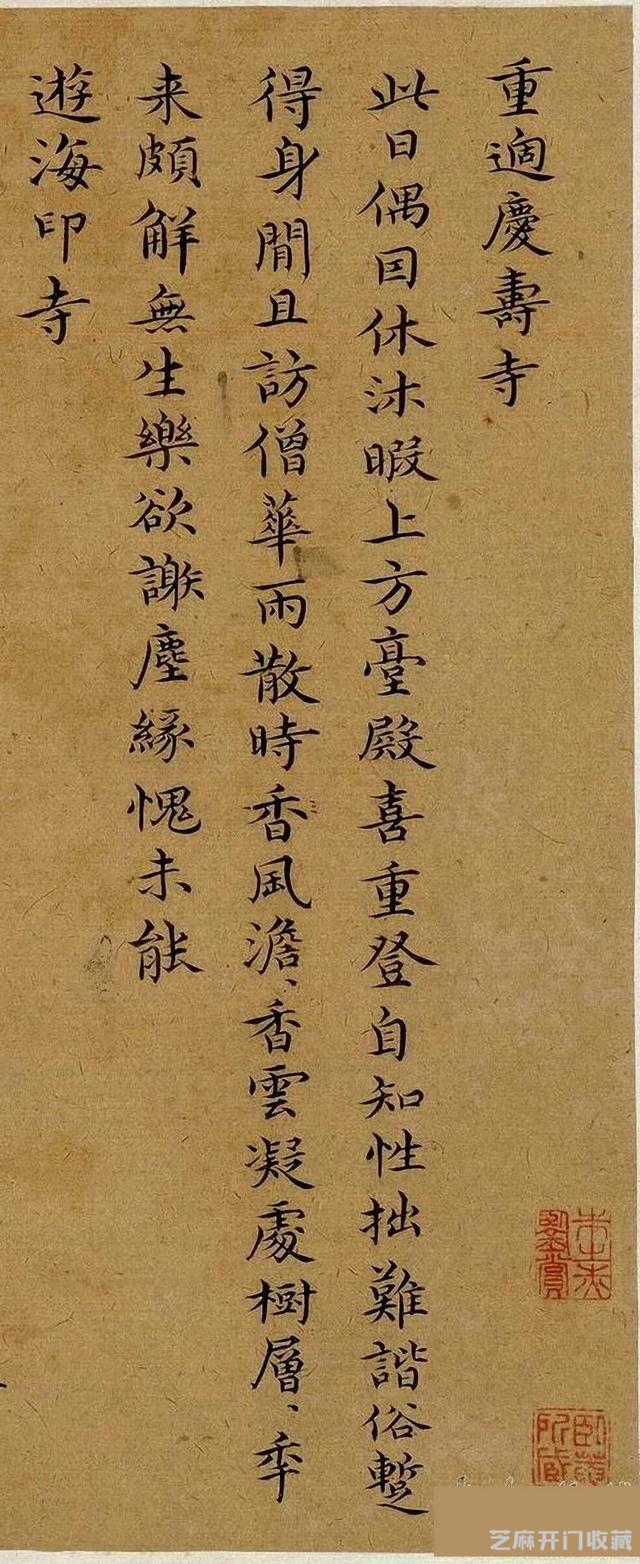 重過慶壽寺
此日偶因休沐暇上方臺殿喜重登自知性拙難諧俗暫
得身閒且訪僧華雨散時香風澹、香雲凝處樹層、年
来頗解無生樂欲謝塵緣愧未能
遊海印寺
芝麻开门收藏